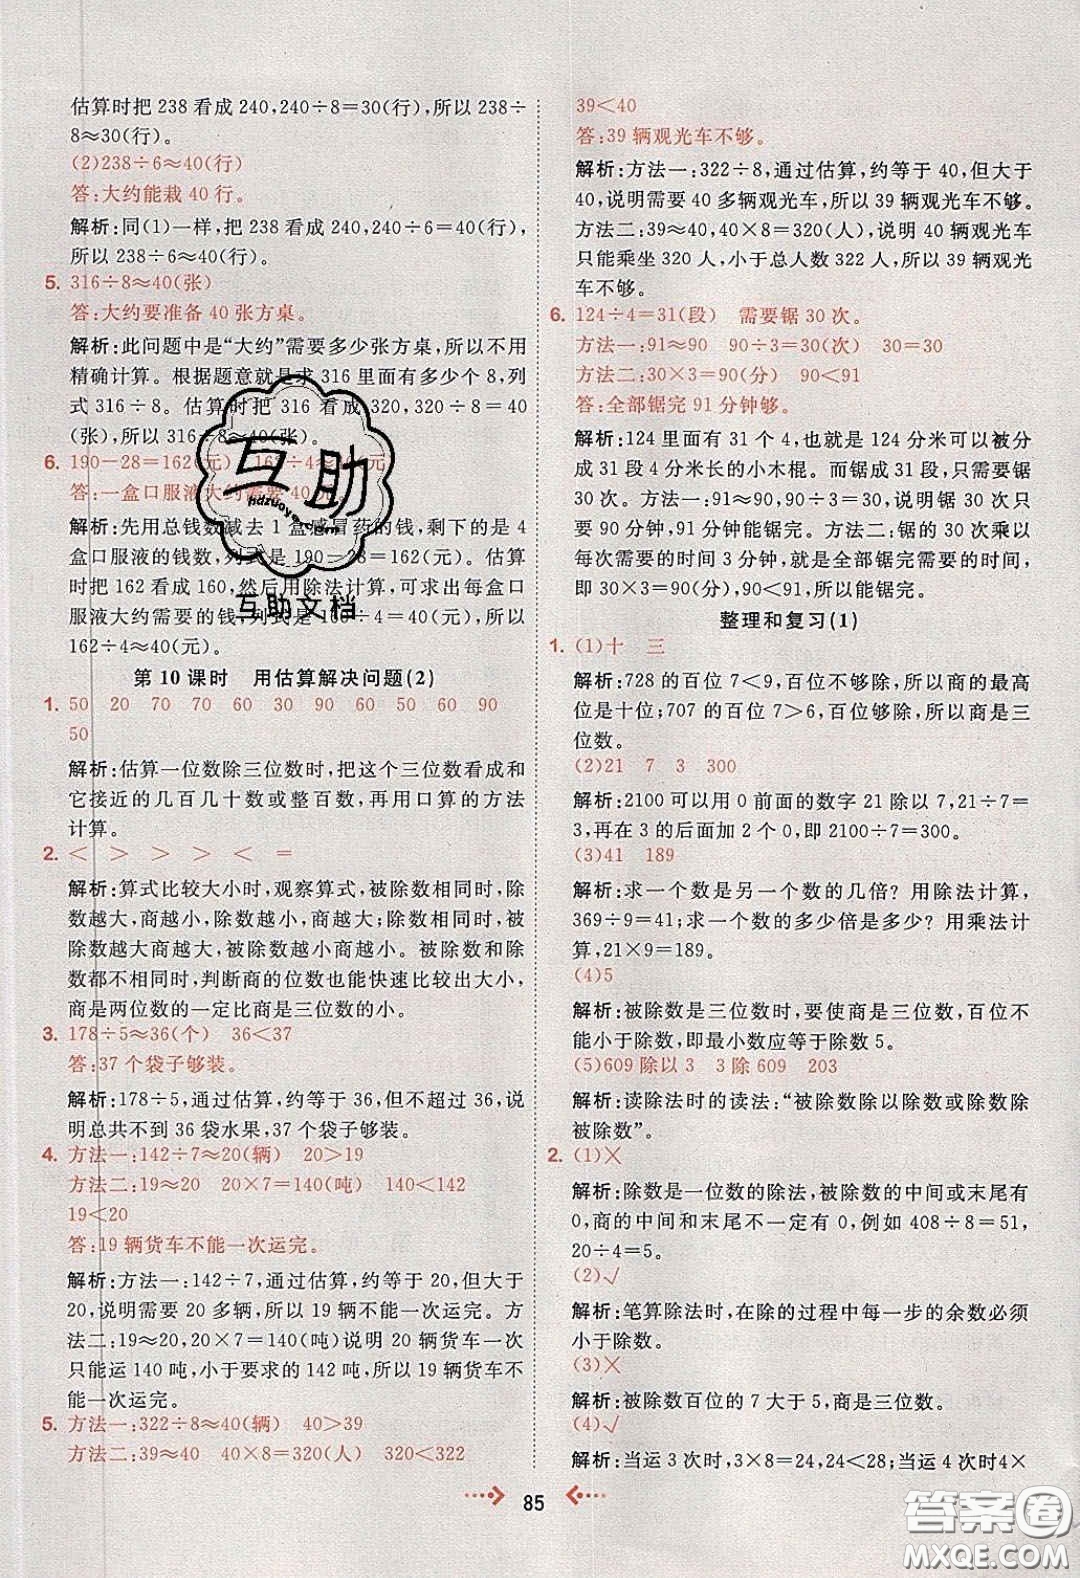 估算时把 238 看成 240,240÷8=30(行),所以 238÷
8≈30(行)。
(2)238÷6≈40(行)
答:大约能栽 40 行。
解析:同(1)一样,把 238 看成 240,240÷6=40(行),
所以 238÷6≈40(行)。
5. 316÷8≈40(张)
答:大约要准备 40 张方桌。
解析:此问题中是“大约”需要多少张方桌,所以不用
精确计算。根据题意就是求 316 里面有多少个 8,列
式 316÷8。估算时把 316 看成 320,320÷8=40
(张),所以 316÷8≈40(张)。
6. 190-28=162(元) 162÷4≈40(元)
答:一盒口服液大约需要 40 元。
解析:先用总钱数减去 1 盒感冒药的钱,剩下的是 4
盒口服液的钱数,列式是 190-28=162(元)。估算
时把 162 看成 160,然后用除法计算,可求出每盒口
服液大约需要的钱,列式是 160÷4=40(元),所以
162÷4≈40(元)。
第 10 课时 用估算解决问题(2)
1. 50 20 70 70 60 30 90 60 90
50
解析:估算一位数除三位数时,把这个三位数看成和
它接近的几百几十数或整百数,再用口算的方法
计算。
2. < > > > < =
解析:算式比较大小时,观察算式,被除数相同时,除
数越大,商越小,除数越小,商越大;除数相同时,被
除数越大商越大,被除数越小商越小。被除数和除
数都不相同时,判断商的位数也能快速比较出大小,
商是两位数的一定比商是三位数的小。
3. 178÷5≈36(个) 36<37
答:37 个袋子够装。
解析:178÷5,通过估算,约等于 36,但不到 36,就说
明总共不到 36 袋水果,37 个袋子够装。
4. 方法一:142÷7≈20(辆) 20>19
方法二:19≈20 20×7=140(吨) 140<142
19<20
答:19 辆货车不能一次运完。
解析:方法一:142÷7,通过估算,约等于 20,但大于
20,说明需要 20 多辆,所以 19 辆不能一次运完。方
法二:19≈20,20×7=140(吨)说明 20 辆货车一次
只能运 140 吨,小于要求的 142 吨,所以 19 辆货车不
能一次运完。
5. 方法一:322÷8≈40(辆) 40>39
方法二:39≈40 40×8=320(人) 320<322
39<40
答:39 辆观光车不够。
解析:方法一:322÷8,通过估算,约等于 40,但大于
40,说明需要 40 多辆观光车,所以 39 辆观光车不够。
方法二:39≈40,40×8=320(人),说明 40 辆观光车
只能乘坐 320 人,小于总人数 322 人,所以 39 辆观光
车不够。
6. 124÷4=31(段) 需要锯 30 次。
方法一:91≈90 90÷3=30 30=30
方法二:30×3=90(分) 90<91
答:全部锯完 91 分钟够。
解析:124 里面有 31 个 4,也就是 124 分米可以被分
成 31 段 4 分米长的小木棍。而锯成 31 段,需要锯
30 次。方法一:91≈90,90÷3=30,说明锯 30 次需
要 90 分钟,91 分钟能锯完。方法二:锯的 30 次乘以
每次需要的时间 3 分钟,就是全部锯完需要的时间,
即 30×3=90(分),所以能锯完。
整理和复习(1)
1. (1)十 三
解析:728 的百位 7<9,百位不够除,所以商的最高
位是十位;707 的百位 7>6,百位够除,所以商是三
位数。
(2)21 7 3 300
解析:2100 可以用 0 前面的数字 21 除以 7,21÷7=
3,再在 3 的后面加 2 个 0,即 2100÷7=300。
(3)41 189
解析:求一个数是另一个数的几倍?用除法计算,
369÷9=41;求一个数的多少倍是多少?用乘法计
算,21×9=189。
(4)5
解析:被除数是三位数时,要使商是三位数,百位不
能小于除数,即最小数应等于除数 5。
(5)609 除以 3 3 除 609 203
解析:读除法时的读法:“被除数除以除数或除数除
被除数”。
2. (1)×
解析:除数是一位数的除法,被除数的中间或末尾有
0,商的中间和末尾不一定有 0,例如 408÷8=51,
20÷4=5。
(2)√
解析:笔算除法时,在除的过程中每一步的余数必须
小于除数。
(3)×
解析:被除数百位的 7 大于 5,商是三位数。
(4)√
解析:当运 3 次时,3×8=24,24<28;当运4次时4×
85
互助
hdzuoye
互助文档
答案圈
MXQE.COM